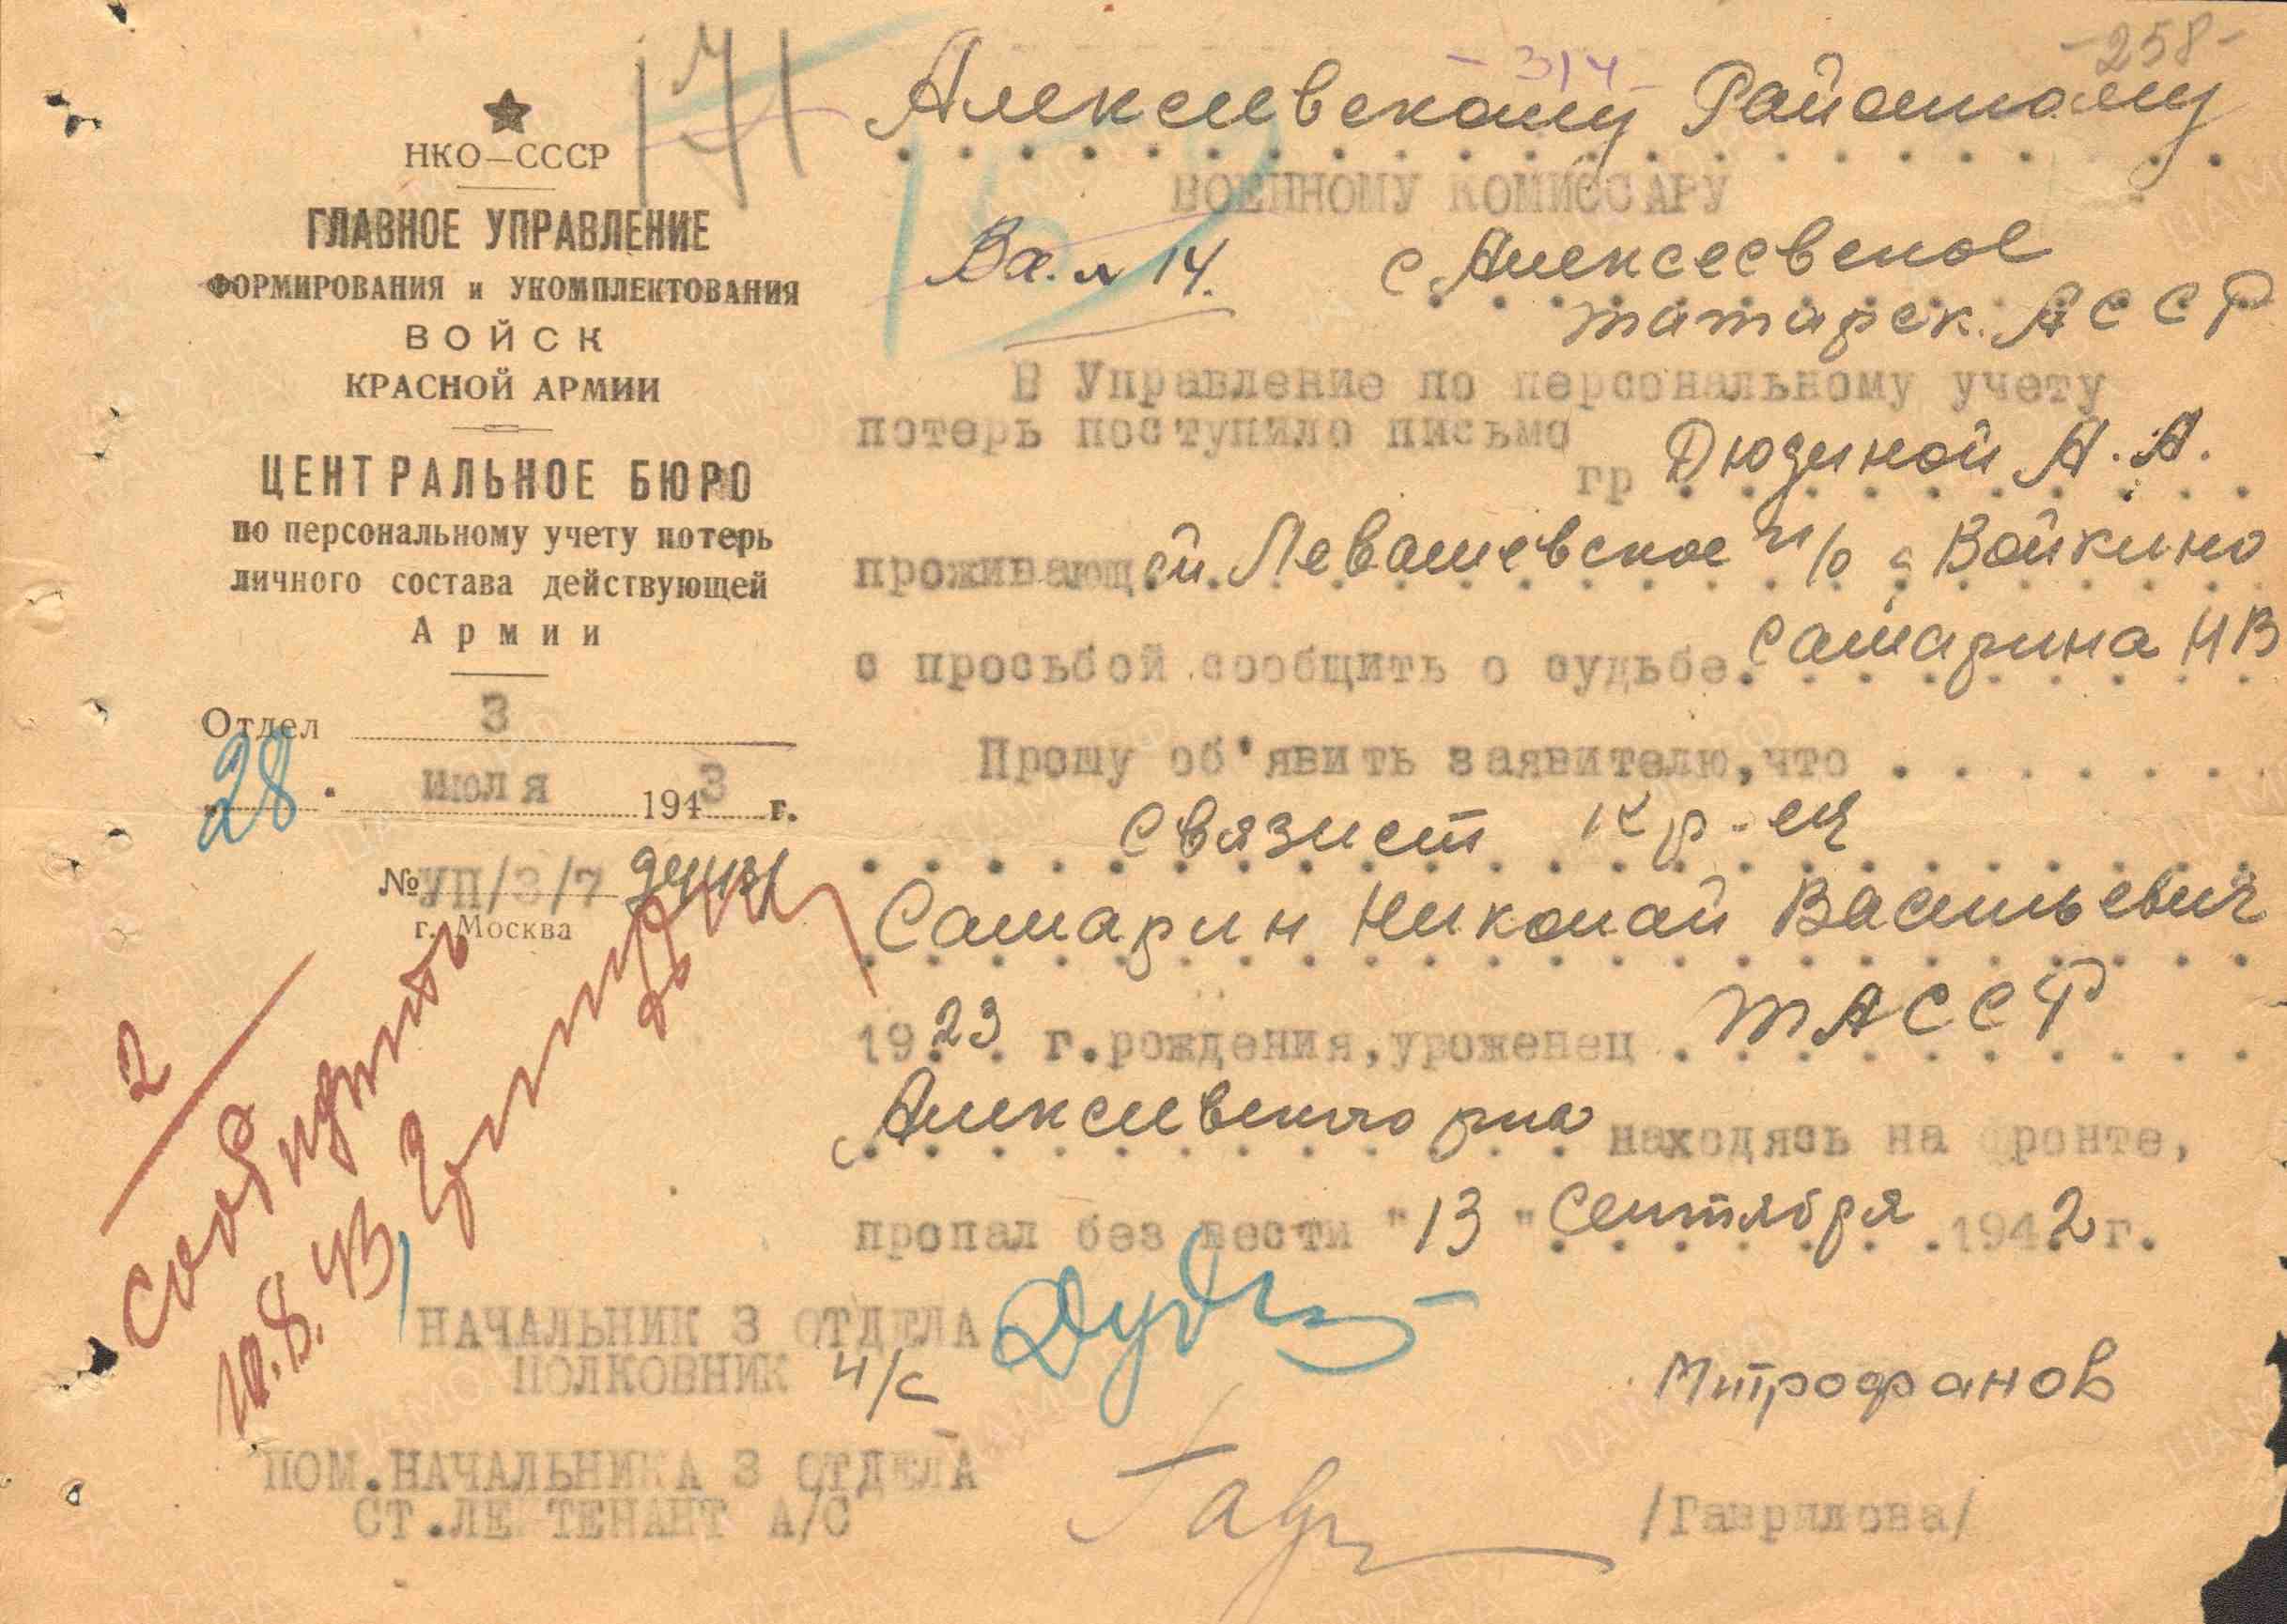 -258-
- 314 -
НКО—СССР
ГЛАВНОЕ УПРАВЛЕНИЕ
ФОРМИРОВАНИЯ и УКОМПЛЕКТОВАНИЯ
ВОЙСК
КРАСНОЙ АРМИИ
ЦЕНТРАЛЬНОЕ БЮРО
по персональному учету потерь
личного состава действующей
Армии
Отдел 3
28 июля 1943 г.
№ УП/3/7
г. Москва
Алексеевскому Районному
ВОЕННОМУ КОМИССАРУ
Вх. № 14.
с. Алексеевское
Татарск. АССР
В Управление по персональному учету
потерь поступило письмо
гр Дюдиной А.А.
проживающей Левашевское п/о с Войкино
с просьбой сообщить о судьбе Самарина НВ
Прошу об'явить заявителю, что . . . . . . .
связист кр-ец
Самарин Николай Васильевич
1923 г.рождения, уроженец ТАССР
Алексеевского рна находясь на фронте,
пропал без вести "13" Сентября 1942 г.
2
Сообщить
10.8.43
НАЧАЛЬНИК 3 ОТДЕЛА
ПОЛКОВНИК И/С
Митрофанов
ПОМ.НАЧАЛЬНИКА 3 ОТДЕЛА
СТ.ЛЕ ТЕНАНТ А/С
/Гаврилова/